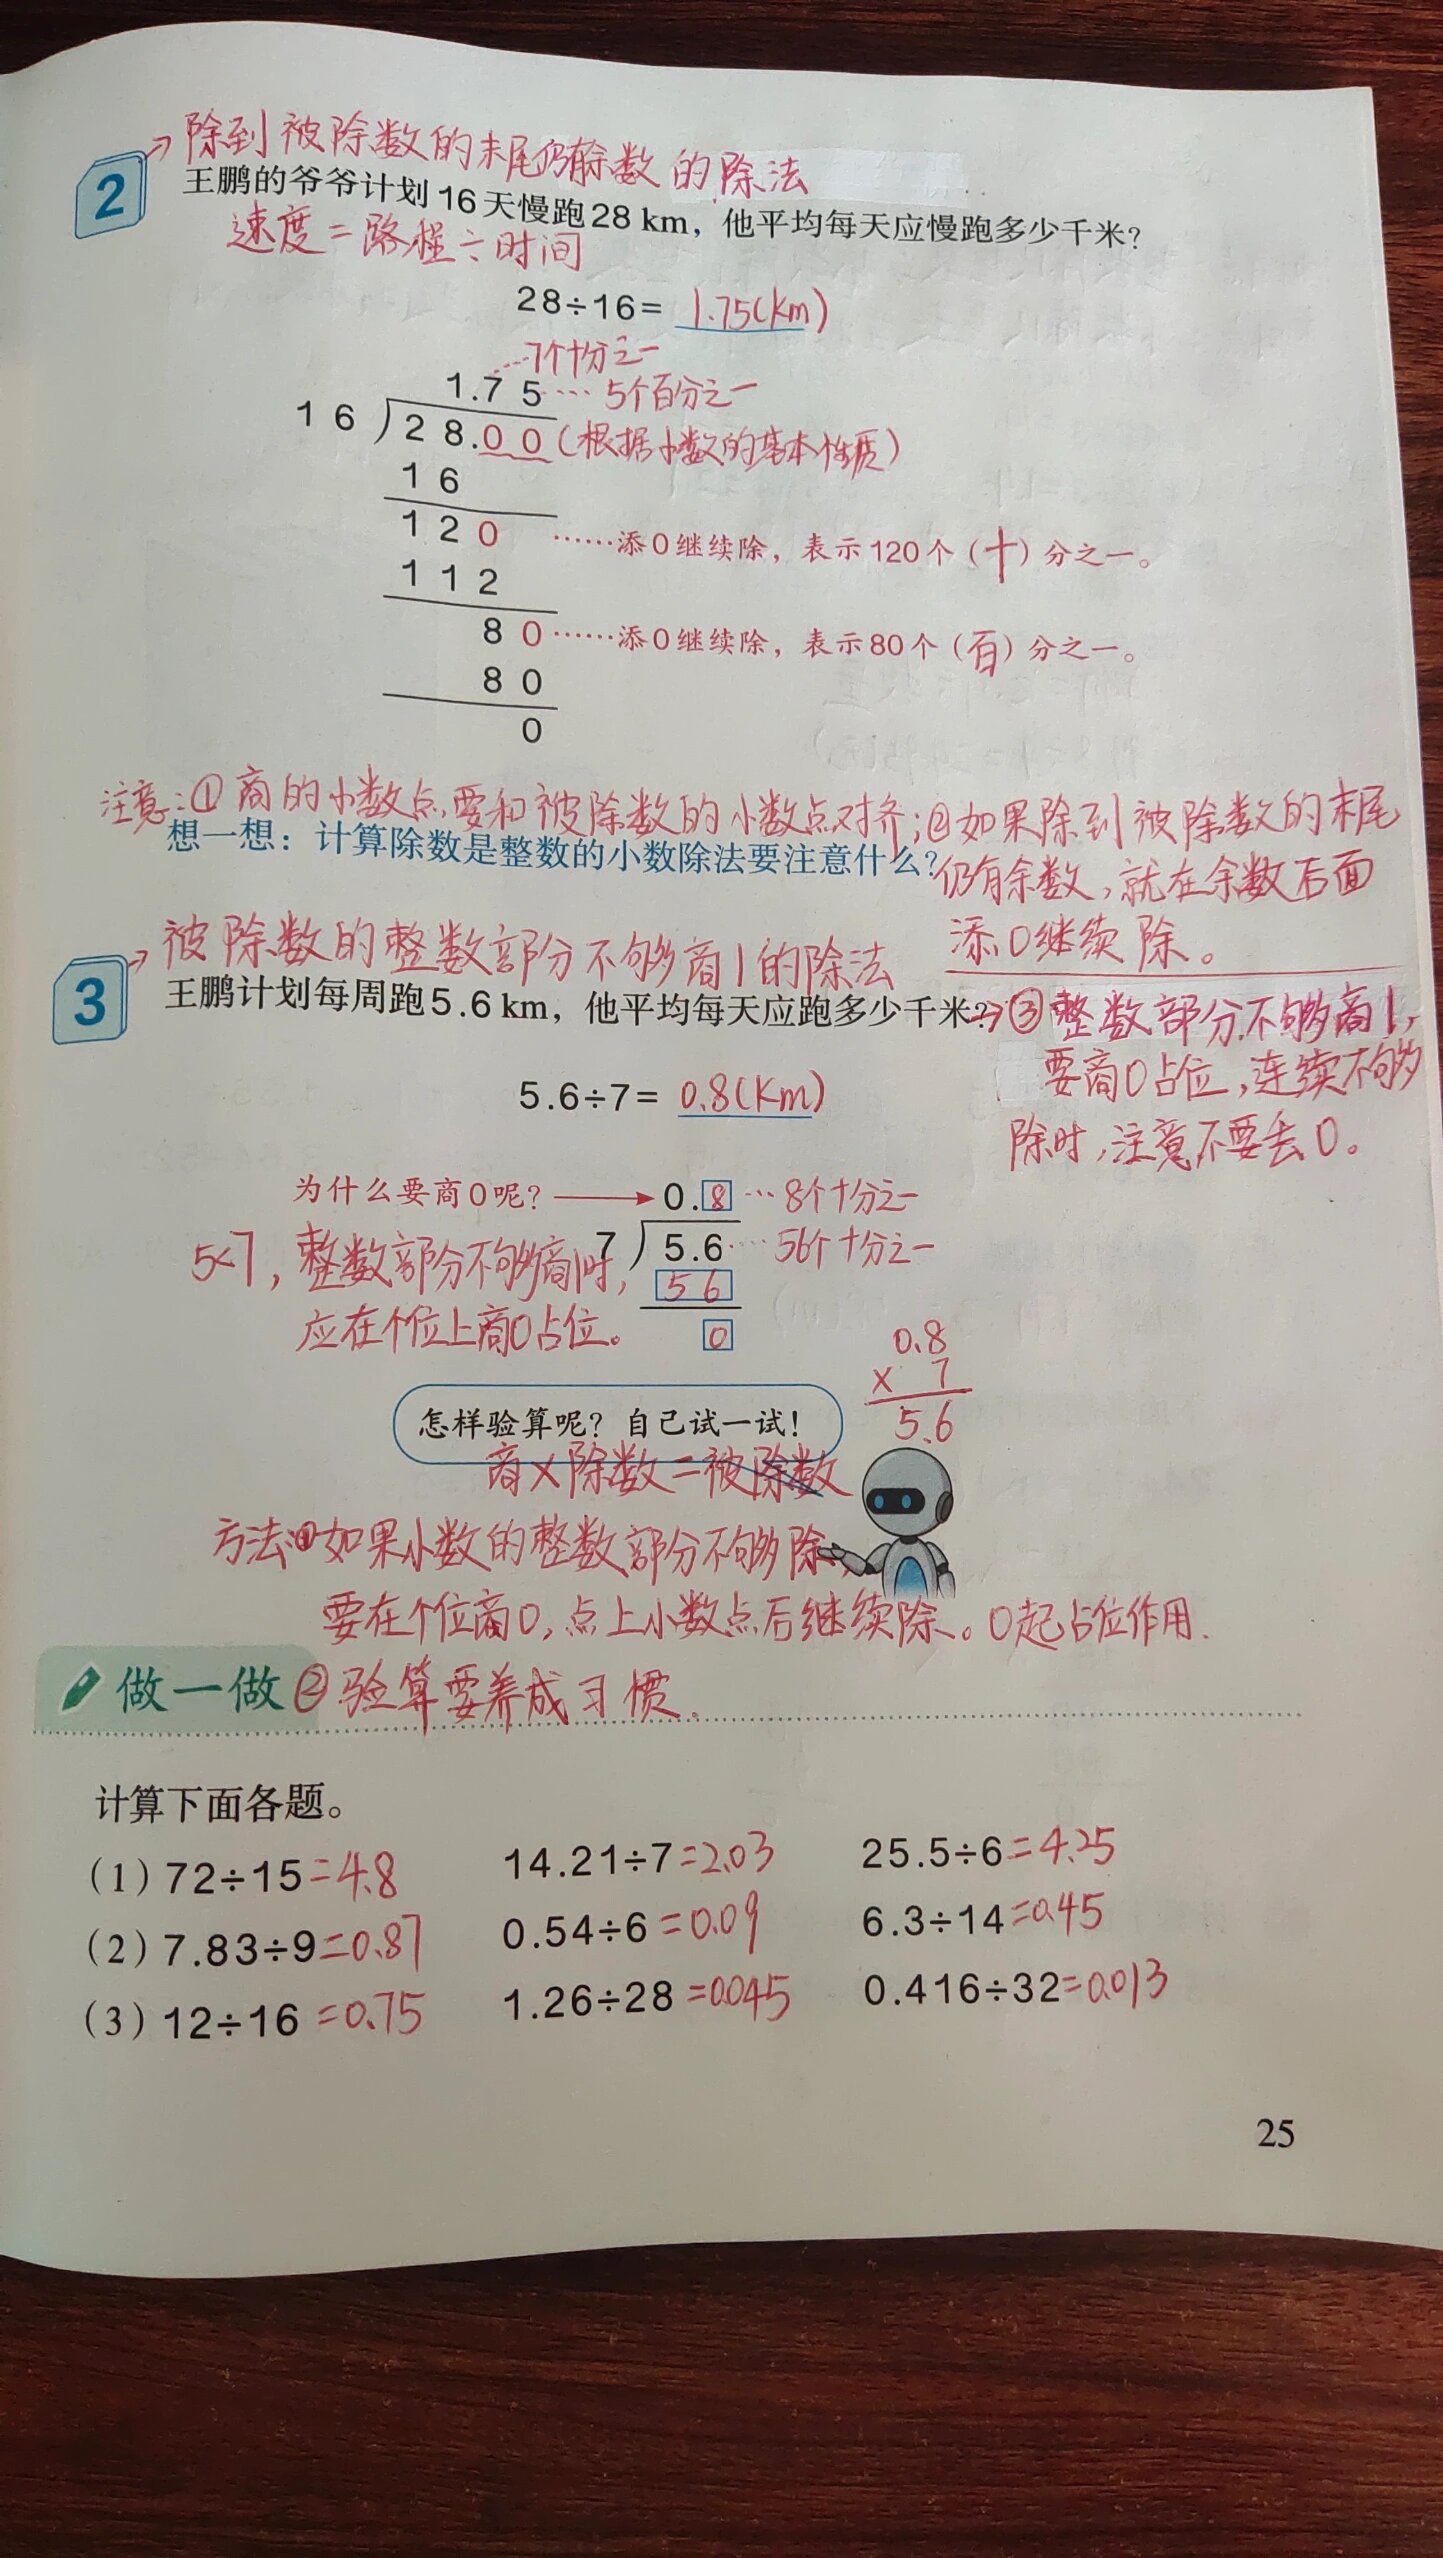 除到被除数的末尾仍有余数的除法
2 王鹏的爷爷计划16天慢跑28 km，他平均每天应慢跑多少千米？
速度=路程÷时间
28÷16= 1.75(km)
7个十分之一
1.75 …… 5个百分之一
16 28.00 (根据小数的基本性质)
16
120 ……添0继续除，表示120个（十）分之一。
112
80 ……添0继续除，表示80个（百）分之一。
80
0
注意：①商的小数点要和被除数的小数点对齐；②如果除到被除数的末尾
仍有余数，就在余数后面
添0继续除。
想一想：计算除数是整数的小数除法要注意什么？
被除数的整数部分不够商1的除法
3 王鹏计划每周跑5.6 km，他平均每天应跑多少千米？
③整数部分不够商1，
要商0占位，连续不够
除时，注意不要丢0。
5.6÷7= 0.8(km)
为什么要商0呢？ 0.8 …8个十分之一
7 5.6 …56个十分之一
56
0
5<7，整数部分不够商1时，
应在个位上商0占位。
0.8
× 7
5.6
怎样验算呢？自己试一试！
商×除数=被除数
方法：①如果小数的整数部分不够除，
要在个位商0，点上小数点后继续除。0起占位作用.
做一做 ②验算要养成习惯.
计算下面各题。
(1) 72÷15=4.8 14.21÷7=2.03 25.5÷6=4.25
(2) 7.83÷9=0.87 0.54÷6=0.09 6.3÷14=0.45
(3) 12÷16=0.75 1.26÷28=0.045 0.416÷32=0.013
25